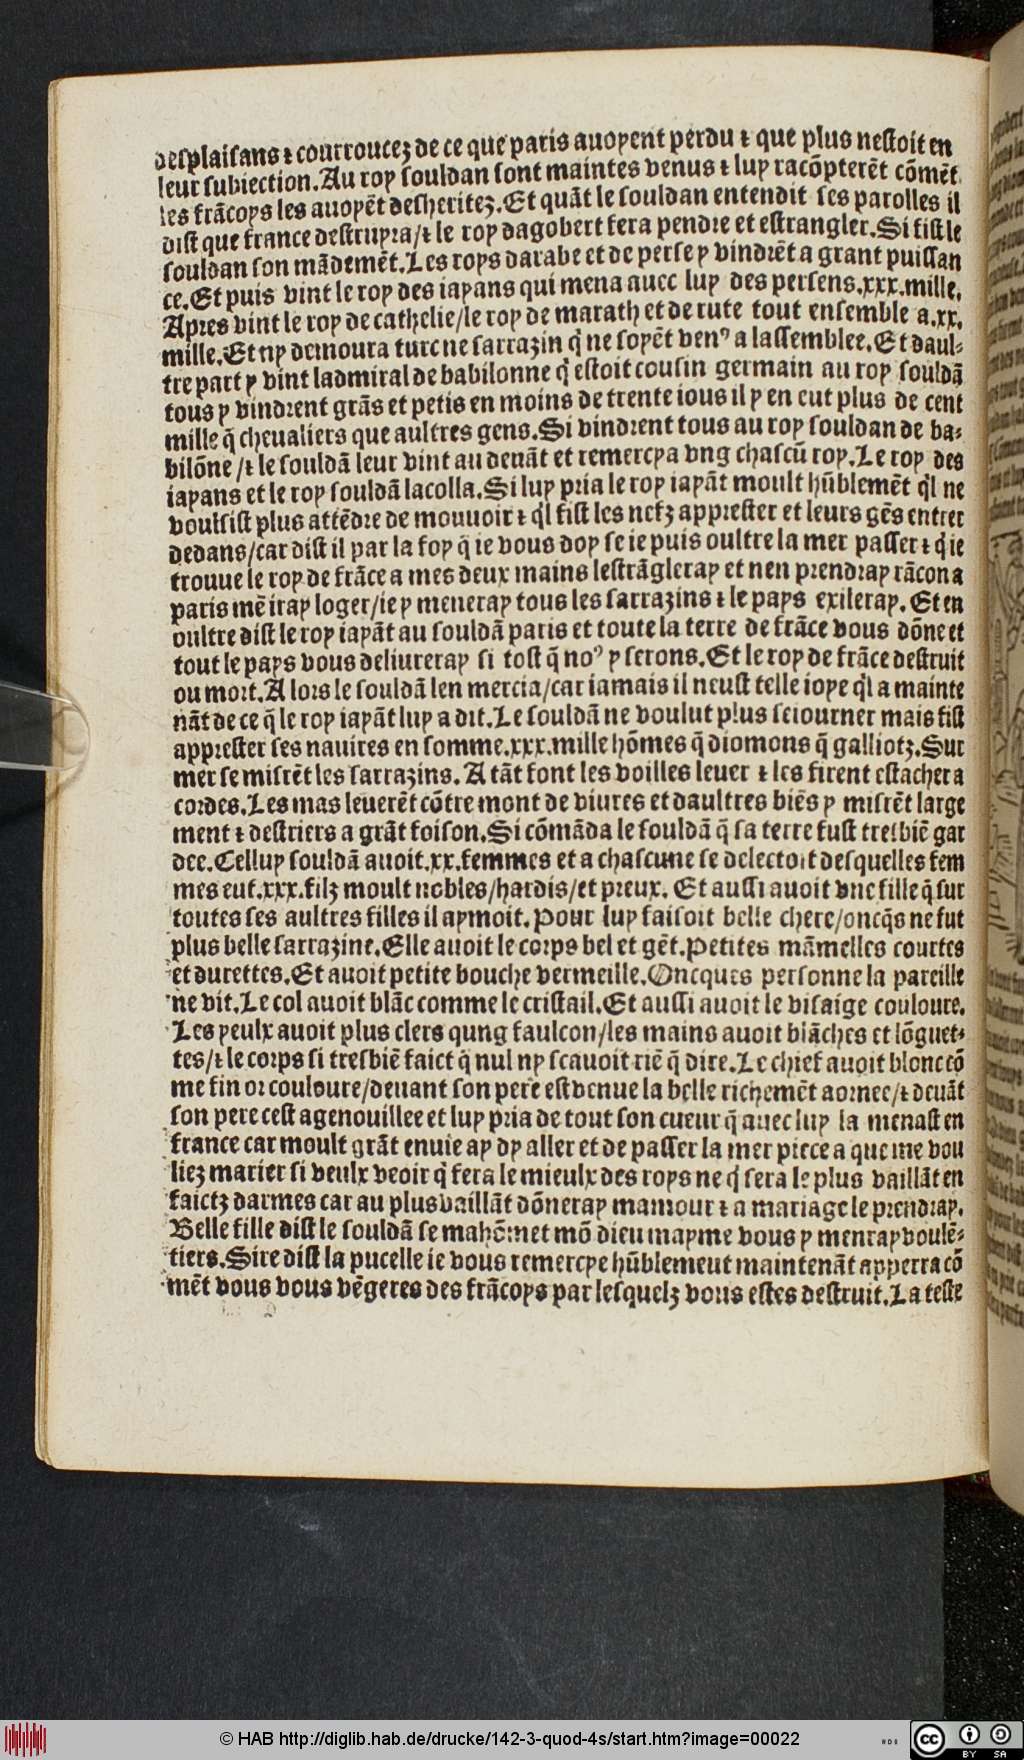 desplaisans ⁊ courroucez de ce que paris auoyent perdu ⁊ que plus nestoit en
leur subiection. Au roy souldan sont maintes venus ⁊ luy racōpterēt cōmēt
les frācoys les auoyēt desheritez. Et quāt le souldan entendit ses parolles il
dist que france destruyra/⁊ le roy dagobert fera pendre et estrangler. Si fist le
souldan son mādemēt. Les roys darabe et de perse y vindrēt a grant puissan
ce. Et puis vint le roy des iapans qui mena auec luy des persens .xxx. mille.
Apres vint le roy de cathelie/le roy de marath et de rute tout ensemble a .xx.
mille. Et ny demoura turc ne sarrazin q̄ ne soyēt venꝰ a lassemblee. Et daul-
tre part y vint ladmiral de babilonne q̄ estoit cousin germain au roy souldā
tous y vindrent grās et petis en moins de trente ious il y en eut plus de cent
mille q̄ cheualiers que aultres gens. Si vindrent tous au roy souldan de ba-
bilōne/⁊ le souldā leur vint au deuāt et remercya vng chascū roy. Le roy des
iapans et le roy souldā lacolla. Si luy pria le roy iapāt moult hūblemēt q̄l ne
voulsist plus attēdre de mouuoir ⁊ q̄l fist les nefz apprester et leurs gēs entrer
dedans/car dist il par la foy q̄ ie vous doy se ie puis oultre la mer passer ⁊ q̄ ie
trouue le roy de frāce a mes deux mains lestrāgleray et nen prendray rācon a
paris mē iray loger/ie y meneray tous les sarrazins ⁊ le pays exileray. Et en
oultre dist le roy iapāt au souldā paris et toute la terre de frāce vous dōne et
tout le pays vous deliureray si tost q̄ noꝰ y serons. Et le roy de frāce destruit
ou mort. A lors le souldā len mercia/car iamais il neust telle ioye q̄l a mainte
nāt de ce q̄ le roy iapāt luy a dit. Le souldā ne voulut plus seiourner mais fist
apprester ses nauires en somme .xxx. mille hōmes q̄ diomons q̄ galliotz. Sur
mer se misrēt les sarrazins. A tāt font les voilles leuer ⁊ les firent estacher a
cordes. Les mas leuerēt cōtre mont de viures et daultres biēs y misrēt large
ment ⁊ destriers a grāt foison. Si cōmāda le souldā q̄ sa terre fust tresbiē gar
dee. Celluy souldā auoit .xx. femmes et a chascune se delectoit desquelles fem
mes eut .xxx. filz moult nobles/hardis/et preux. Et aussi auoit vne fille q̄ sur
toutes ses aultres filles il aymoit. Pour luy faisoit belle chere/oncq̄s ne fut
plus belle sarrazine. Elle auoit le corps bel et gēt. Petites māmelles courtes
et durettes. Et auoit petite bouche vermeille. Oncques personne la pareille
ne vit. Le col auoit blāc comme le cristail. Et aussi auoit le visaige couloure.
Les yeulx auoit plus clers qung faulcon/les mains auoit blāches et lōguet-
tes/⁊ le corps si tresbiē faict q̄ nul ny scauoit riē q̄ dire. Le chief auoit blonc cō
me fin or couloure/deuant son pere est venue la belle richemēt aornee/⁊ deuāt
son pere cest agenouillee et luy pria de tout son cueur q̄ auec luy la menast en
france car moult grāt enuie ay dy aller et de passer la mer piece a que me vou
liez marier si veulx veoir q̄ fera le mieulx des roys ne q̄ sera le plus vaillāt en
faictz darmes car au plus vaillāt dōneray mamour ⁊ a mariage le prendray.
Belle fille dist le souldā se mahōmet mō dieu mayme vous y menray voulē-
tiers. Sire dist la pucelle ie vous remercye hūblement maintenāt apperra cō
mēt vous vous vēgeres des frācoys par lesquelz vous estes destruit. La teste
© HAB http://diglib.hab.de/drucke/142-3-quod-4s/start.htm?image=00022
cc BY SA